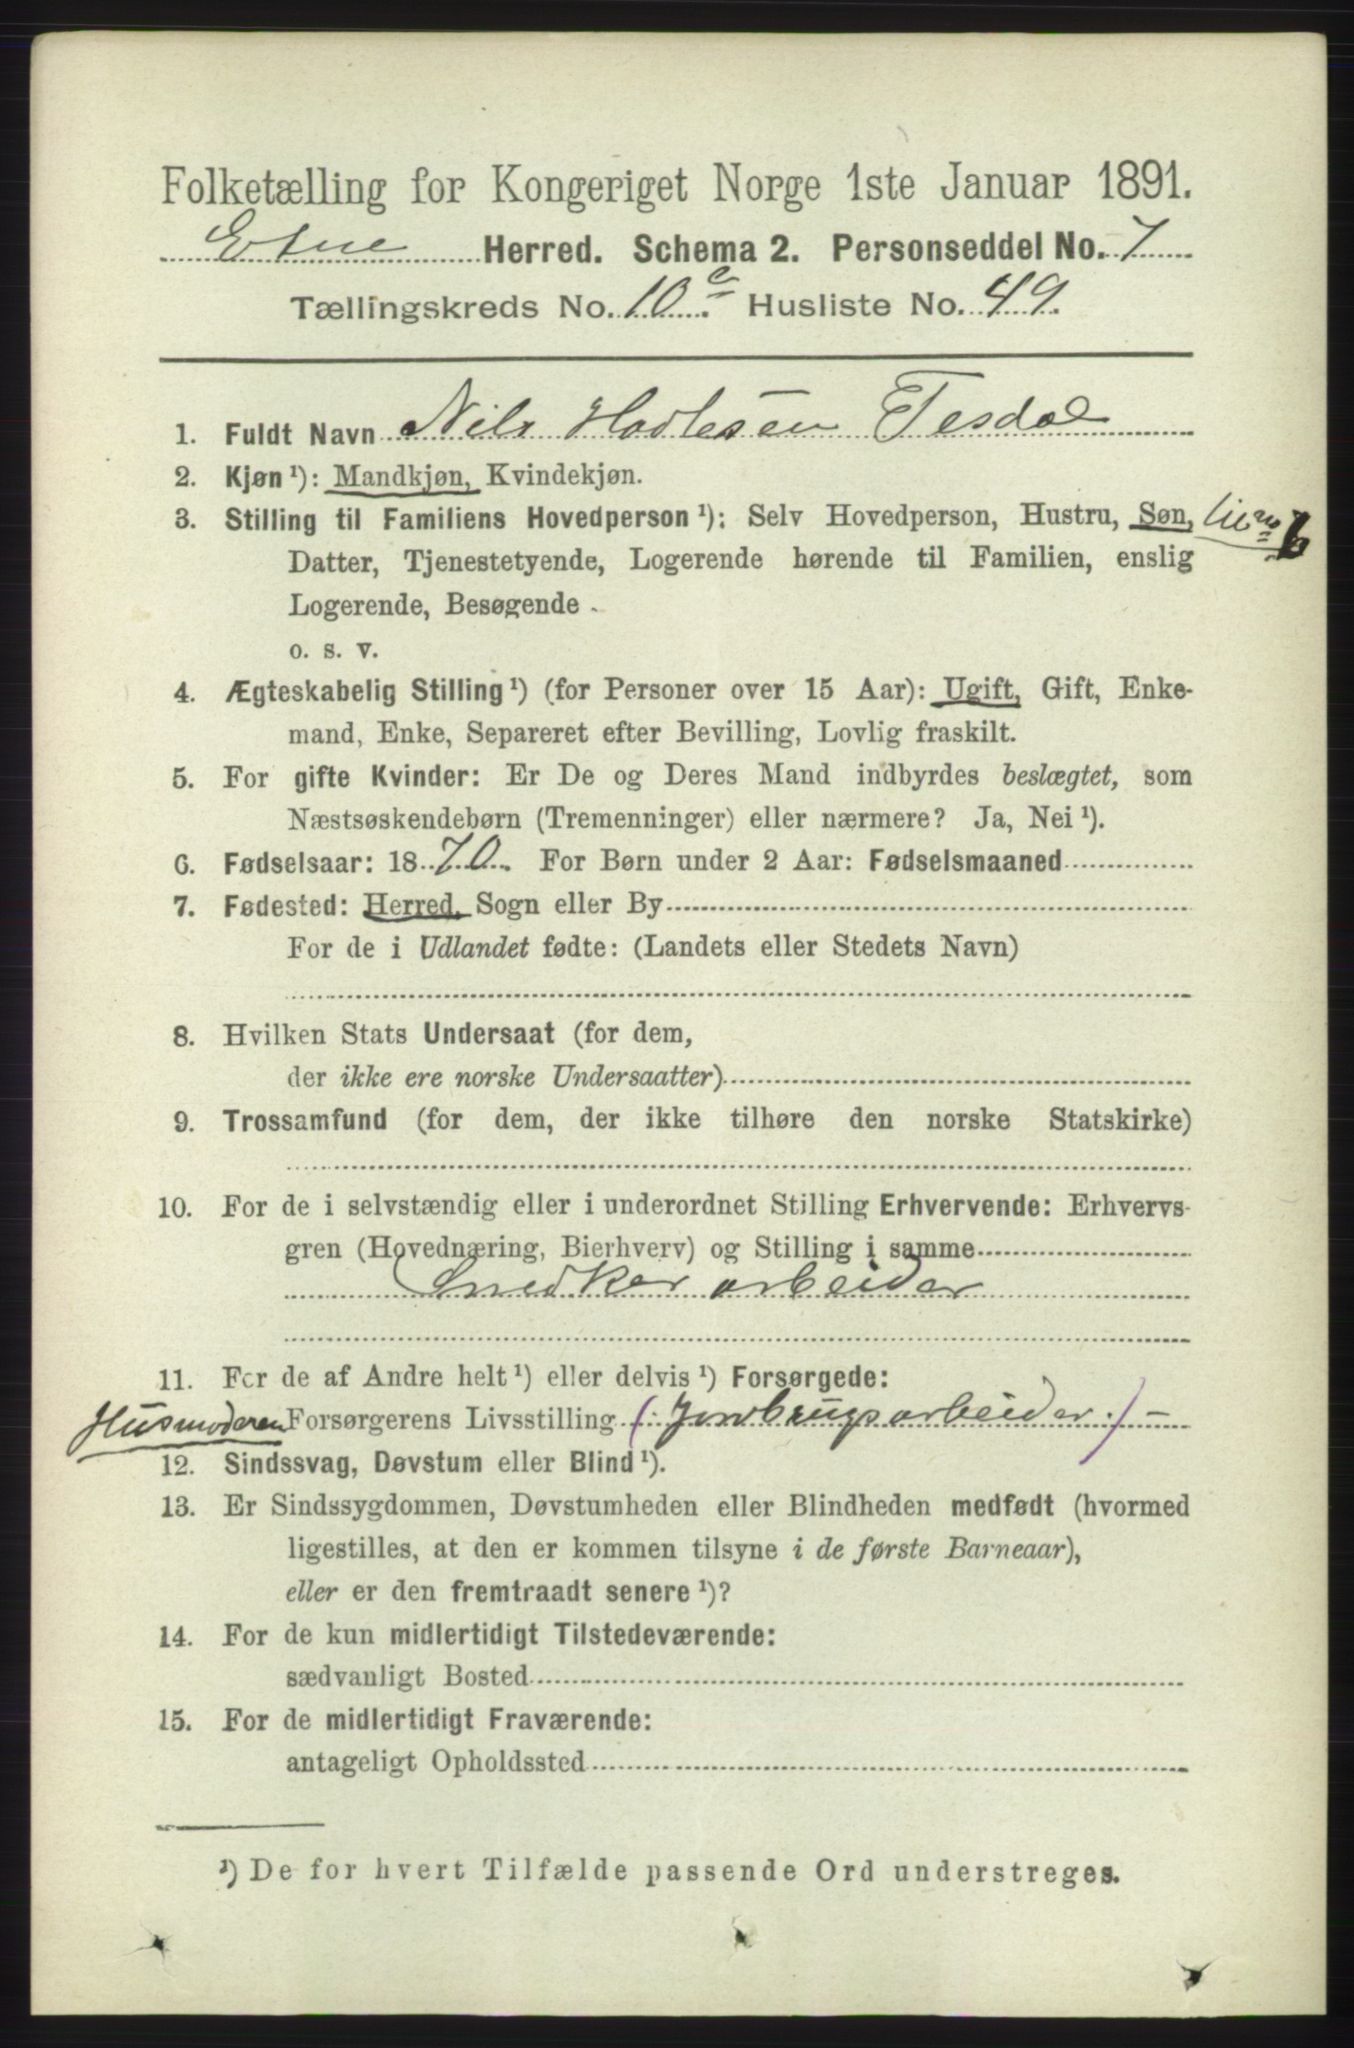 Folketælling for Kongeriget Norge 1ste Januar 1891.
Etne Herred. Schema 2. Personseddel No. 7
Tællingskreds No. 10 Husliste No. 49.
1. Fuldt Navn Nils Tesdal
2. Kjøn ¹): Mandkjøn, Kvindekjøn.
3. Stilling til Familiens Hovedperson ¹): Selv Hovedperson, Hustru, Søn,
Datter, Tjenestetyende, Logerende hørende til Familien, enslig
Logerende, Besøgende .
o. s. v.
4. Ægteskabelig Stilling ¹) (for Personer over 15 Aar): Ugift, Gift, Enke-
mand, Enke, Separeret efter Bevilling, Lovlig fraskilt.
5. For gifte Kvinder: Er De og Deres Mand indbyrdes beslægtet, som
Næstsøskendebørn (Tremenninger) eller nærmere? Ja, Nei ¹).
6. Fødselsaar: 1870. For Børn under 2 Aar: Fødselsmaaned
7. Fødested: Herred, Sogn eller By
For de i Udlandet fødte: (Landets eller Stedets Navn)
8. Hvilken Stats Undersaat (for dem,
der ikke ere norske Undersaatter)
9. Trossamfund (for dem, der ikke tilhøre den norske Statskirke)
10. For de i selvstændig eller i underordnet Stilling Erhvervende: Erhvervs-
gren (Hovednæring, Bierhverv) og Stilling i samme
Snedker arbeider
11. For de af Andre helt ¹) eller delvis ¹) Forsørgede:
Husmoderen Forsørgerens Livsstilling (Jordbrugsarbeider.) -
12. Sindssvag, Døvstum eller Blind ¹).
13. Er Sindssygdommen, Døvstumheden eller Blindheden medfødt (hvormed
ligestilles, at den er kommen tilsyne i de første Barneaar),
eller er den fremtraadt senere ¹)?
14. For de kun midlertidigt Tilstedeværende:
sædvanligt Bosted
15. For de midlertidigt Fraværende:
antageligt Opholdssted
¹) De for hvert Tilfælde passende Ord understreges.